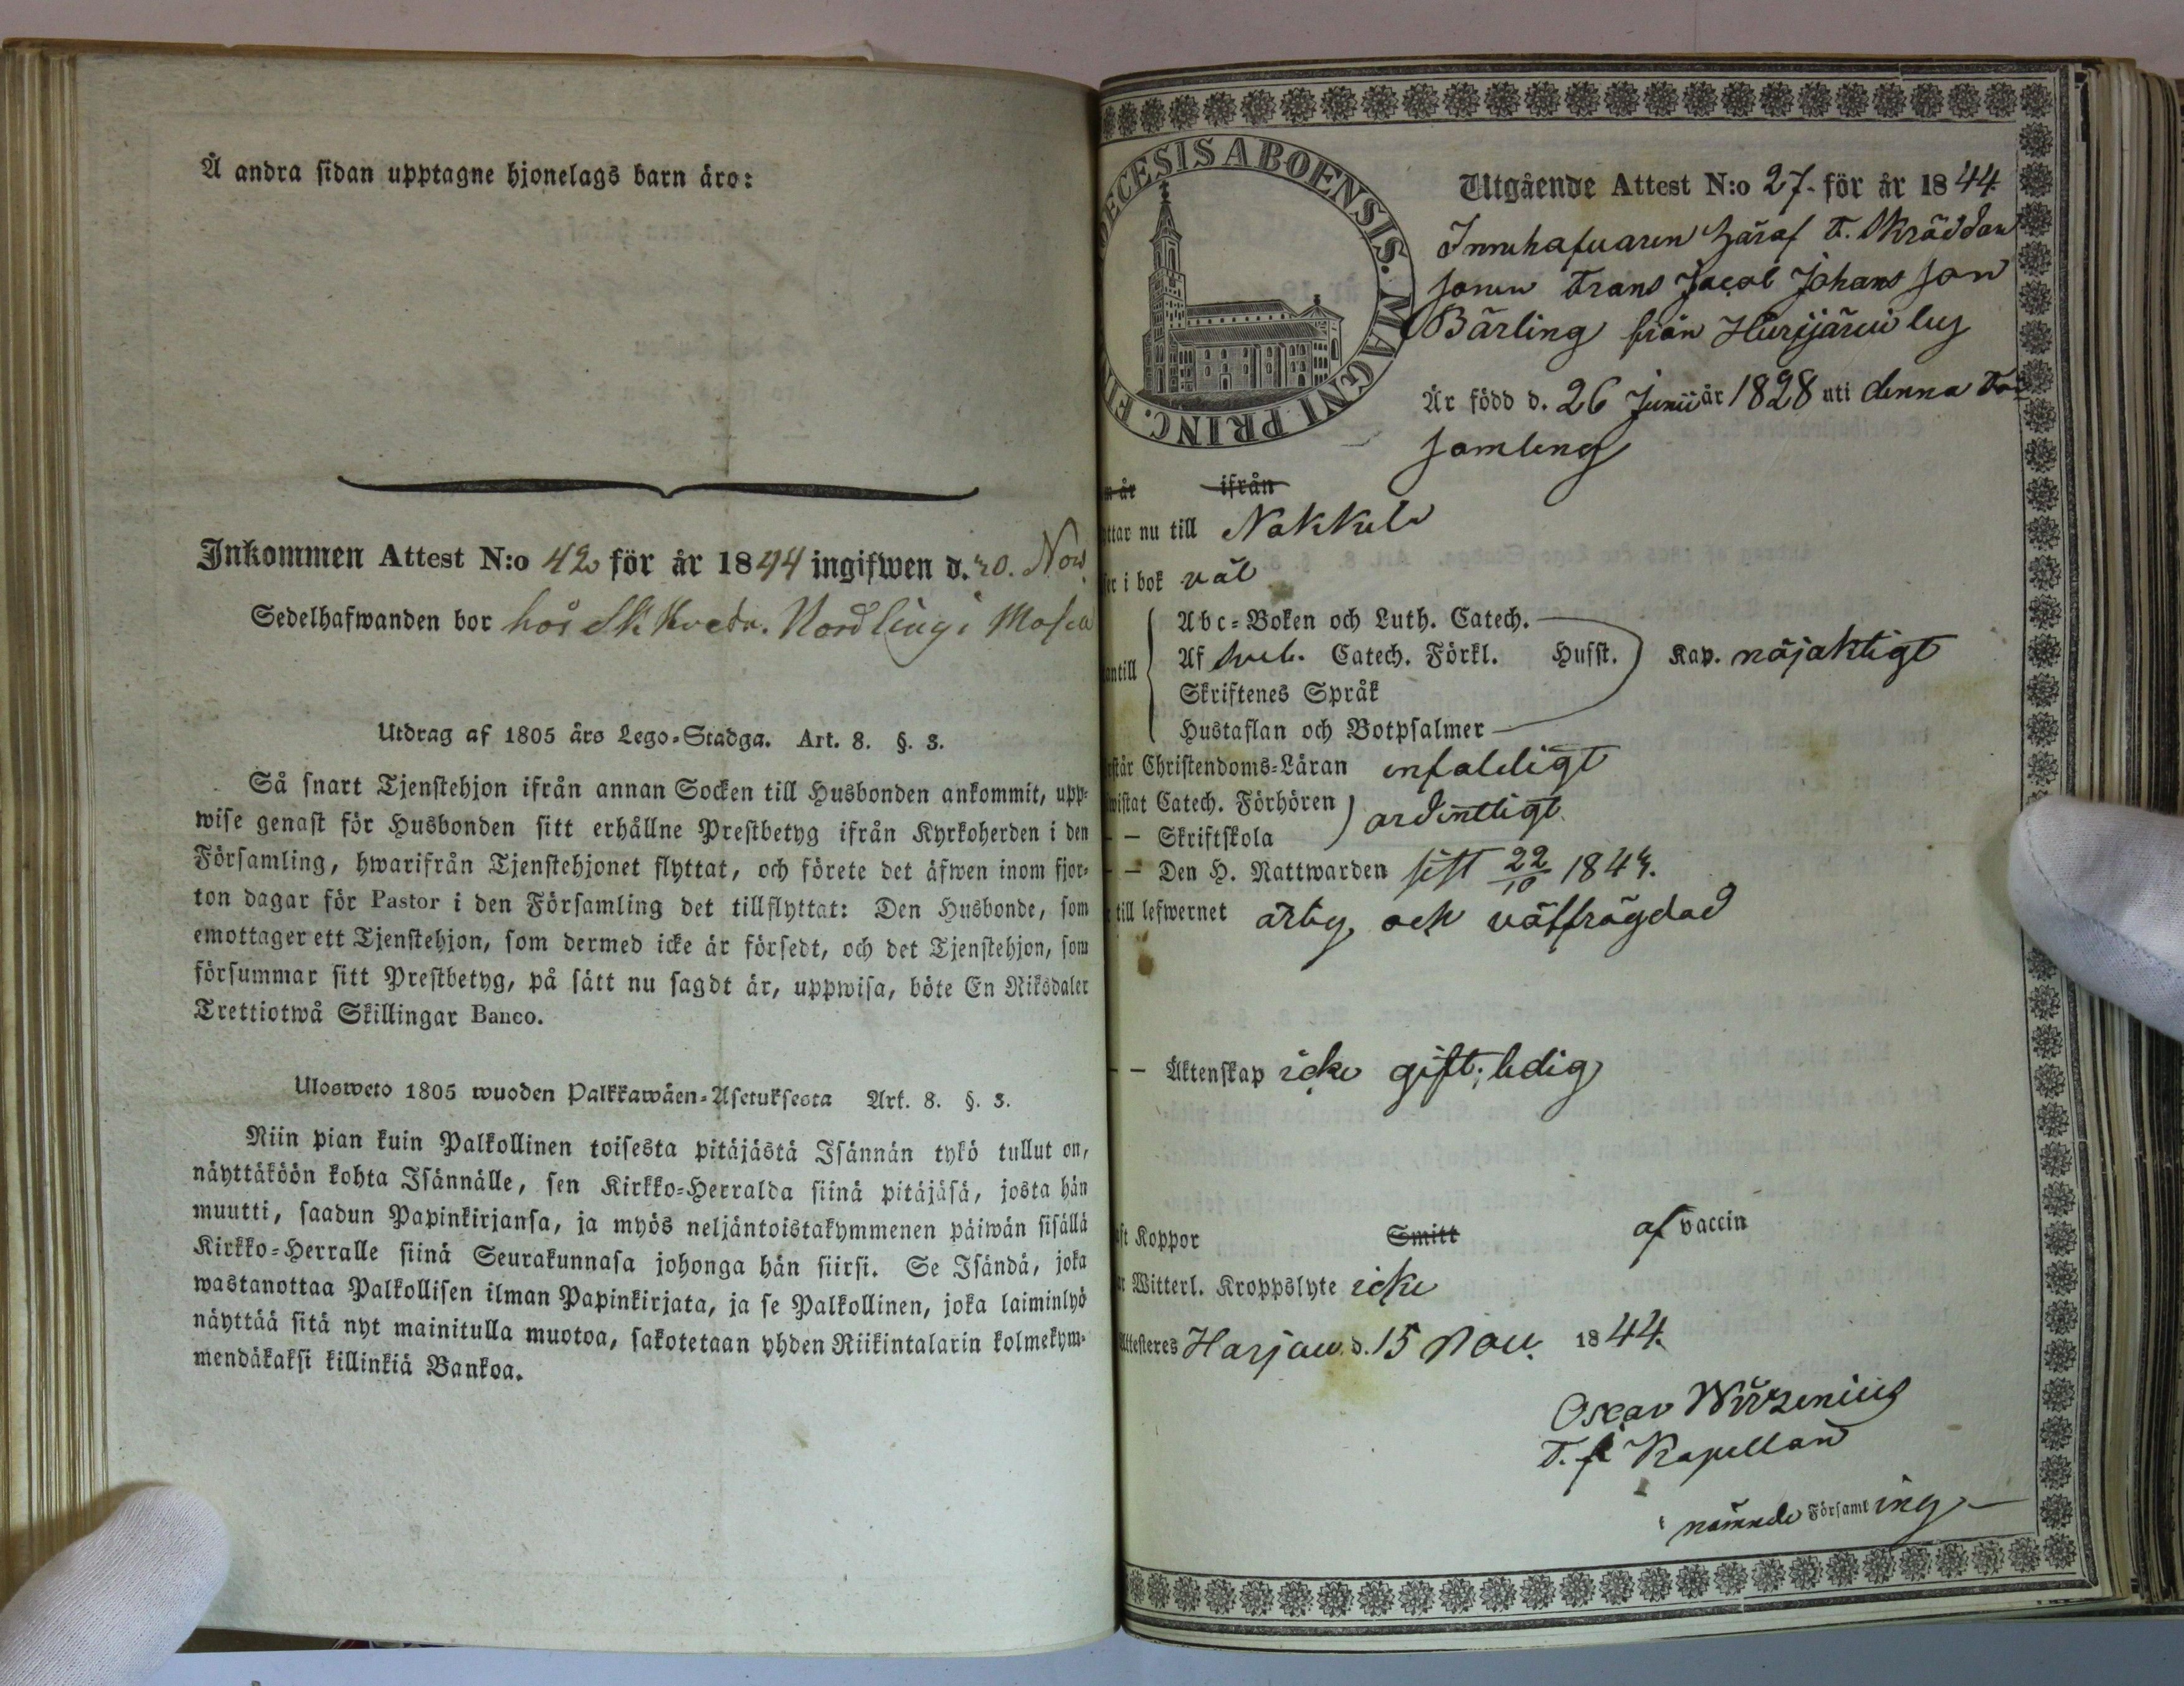 Å andra sidan upptagne hjonelags barn äro:
Inkommen Attest N:o 42 för år 1844 ingifwen d. 20. Nov.
Sedelhafwanden bor hos Nordling i
Utdrag af 1805 års Lego-Stadga. Art. 8. §. 3.
Så snart Tjenstehjon ifrån annan Socken till Husbonden ankommit, upp-
wise genast för Husbonden sitt erhållne Prestbetyg ifrån Kyrkoherden i den
Församling, hwarifrån Tjenstehjonet flyttat, och förete det äfwen inom fjor-
ton dagar för Pastor i den Församling det tillflyttat: Den Husbonde, som
emottager ett Tjenstehjon, som dermed icke är försedt, och det Tjenstehjon, som
försummar sitt Prestbetyg, på sätt nu sagdt är, uppwisa, böte En Riksdaler
Trettiotwå Skillingar Banco.
Ulosweto 1805 wuoden Palkkawäen-Asetuksesta Art. 8. §. 3.
Niin pian kuin Palkollinen toisesta pitäjästä Isännän tykö tullut on,
näyttäköön kohta Isännälle, sen Kirkko-Herralda siinä pitäjäsä, josta hän
muutti, saadun Papinkirjansa, ja myös neljäntoistakymmenen päiwän sisällä
Kirkko-Herralle siinä Seurakunnasa johonga hän siirsi. Se Isändä, joka
wastanottaa Palkollisen ilman Papinkirjata, ja se Palkollinen, joka laiminlyö
näyttää sitä nyt mainitulla muotoa, sakotetaan yhden Riikintalarin kolmekym-
mendäkaksi killinkiä Bankoa.
ECESIS ABOENSIS. MAGNI PRINC.
Utgående Attest N:o 27. för år 1844.
Innehafvaren häraf Skräddare
sonen Frans Jacob Johansson
Bärling från Hurjjärvi by
Är född d. 26 Junii år 1828 uti denna För
samling
år ifrån
ttar nu till Nakkila
i bok väl
Abc-Boken och Luth. Catech.
antill Af Sveb. Catech. Förkl. Husst. Kap. nöjaktigt
Skriftenes Språk
Hustaflan och Botpsalmer
står Christendoms-Läran enfaldigt
wistat Catech. Förhören ordentligt
— — Skriftskola
— — Den H. Nattwarden sist 22/10 1844.
till lefwernet ärlig och välfrägdad
— — Äktenskap icke gift; ledig
aft Koppor Smitt af vaccin
Witterl. Kroppslyte icke
Attesteres Harjav. d. 15 Nov. 1844.
Oscar Wirzenius
T. f. Kapellan
i nämnde Församling